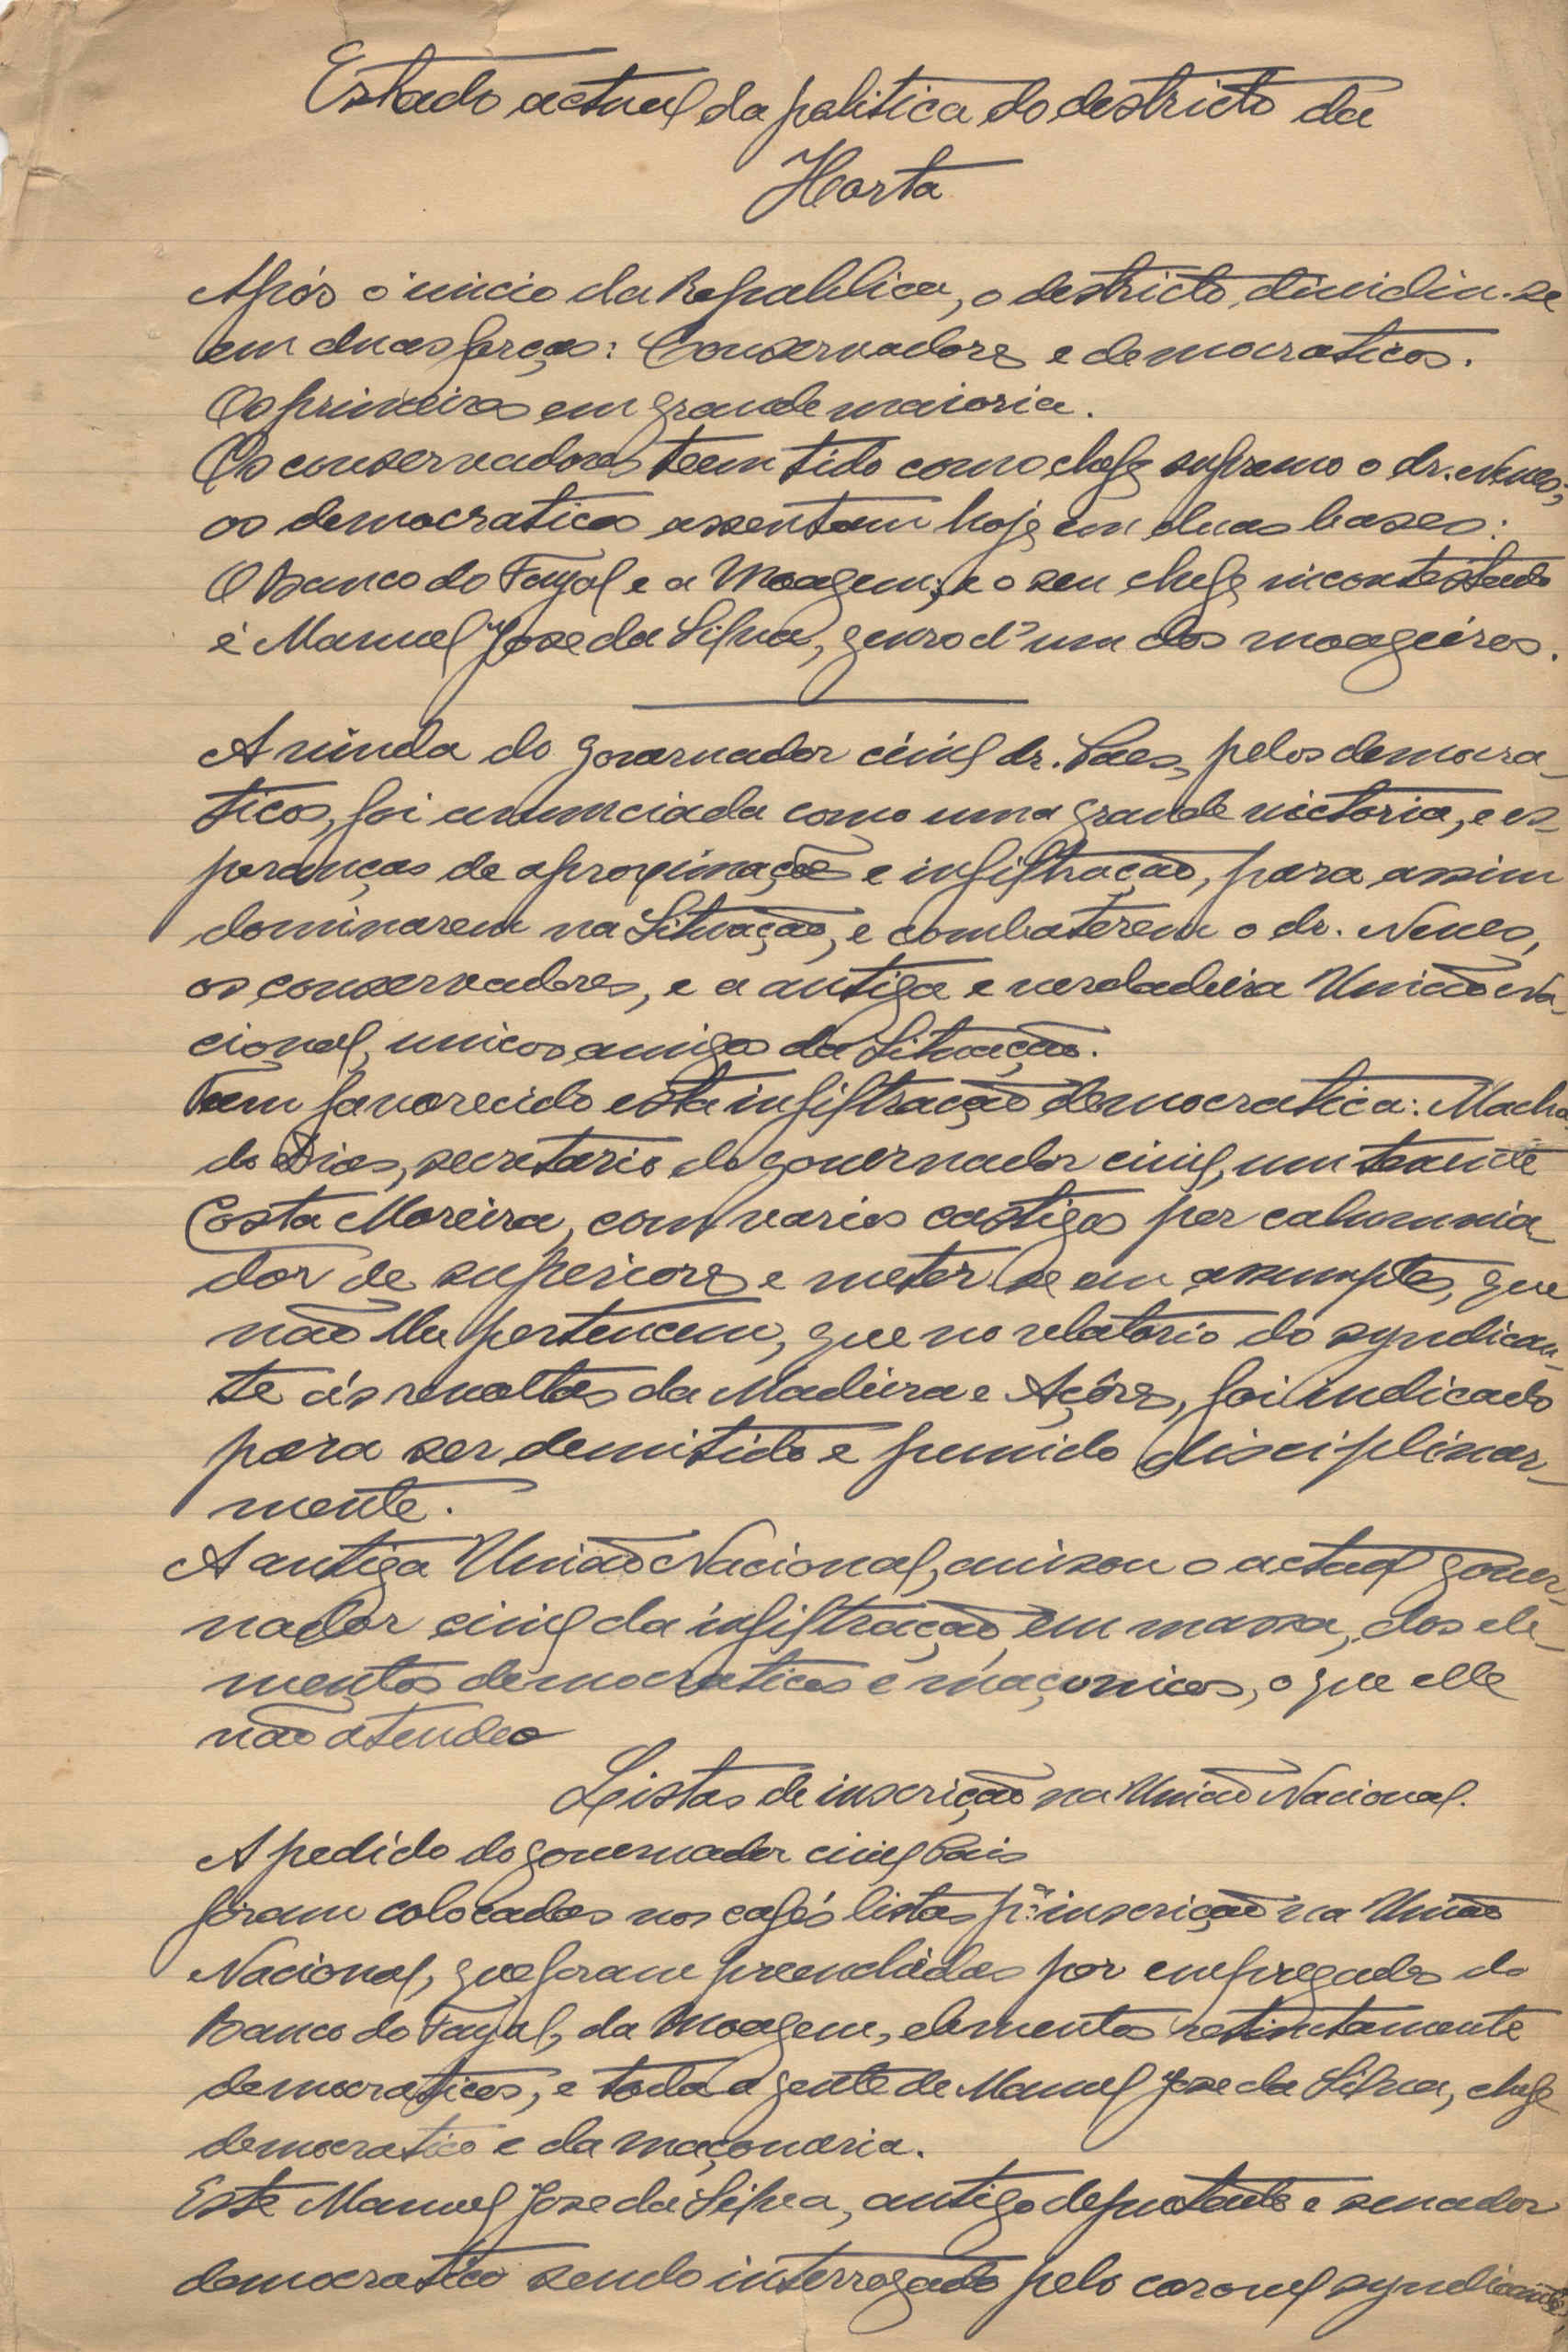 Estado actual da politica do destricto da
Horta
Após o inicio da Republica, o destricto dividiu-se
em duas forças: Conservadores e democraticos.
Os primeiros em grande maioria.
Os conservadores teem tido como chefe supremo o dr. Neves;
os democraticos assentam hoje em duas bases:
O Banco do Fayal e a Moagem; e o seu chefe incontestado
é Manuel José da Silva, genro d'um dos moageiros.
A vinda do governador civil dr. Paes, pelos democra-
ticos, foi anunciada como uma grande victoria, e es-
peranças de aproximação e infiltração, para assim
dominarem na Situação, e combaterem o dr. Neves,
os conservadores, e a antiga e verdadeira União Na-
cional, unicos amigos da Situação.
Tem favorecido esta infiltração democratica: Macha-
do Dias, secretario do governador civil, um tenente
Costa Moreira, com varios castigos por calumnia-
dor de superiores e meter-se em assumptos, que
não lhe pertencem, que no relatorio do syndican-
te ás revoltas da Madeira e Açôres, foi indicado
para ser demitido e punido disciplinar-
mente.
A antiga União Nacional, avisou o actual gover-
nador civil da infiltração, em massa, dos ele-
mentos democraticos e maçonicos, o que elle
não atendeo
Listas de inscrição na União Nacional.
A pedido do governador civil Pais
foram colocadas nos cafés listas pª inscrição na União
Nacional, que foram preenchidas por empregados do
Banco do Fayal, da Moagem, elementos retintamente
democraticos, e toda a gente de Manuel José da Silva, chefe
democratico e da maçonaria.
Este Manuel José da Silva, antigo deputado e senador
democratico sendo interrogado pelo coronel syndicante,